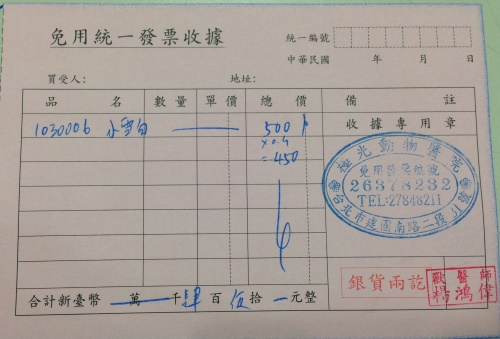 免用統一發票收據
統一編號
中華民國 年 月 日
買受人: 地址:
品名 數量 單價 總價 備註
1030006 小雪白 500
收據專用章
x0.9
=450
極光動物醫院
免用發票統號
26378232
TEL:27848211
台北市建國南路二段
銀貨兩訖
獸醫師
楊鴻偉
合計新臺幣 萬 千 肆 百 伍 拾 元整